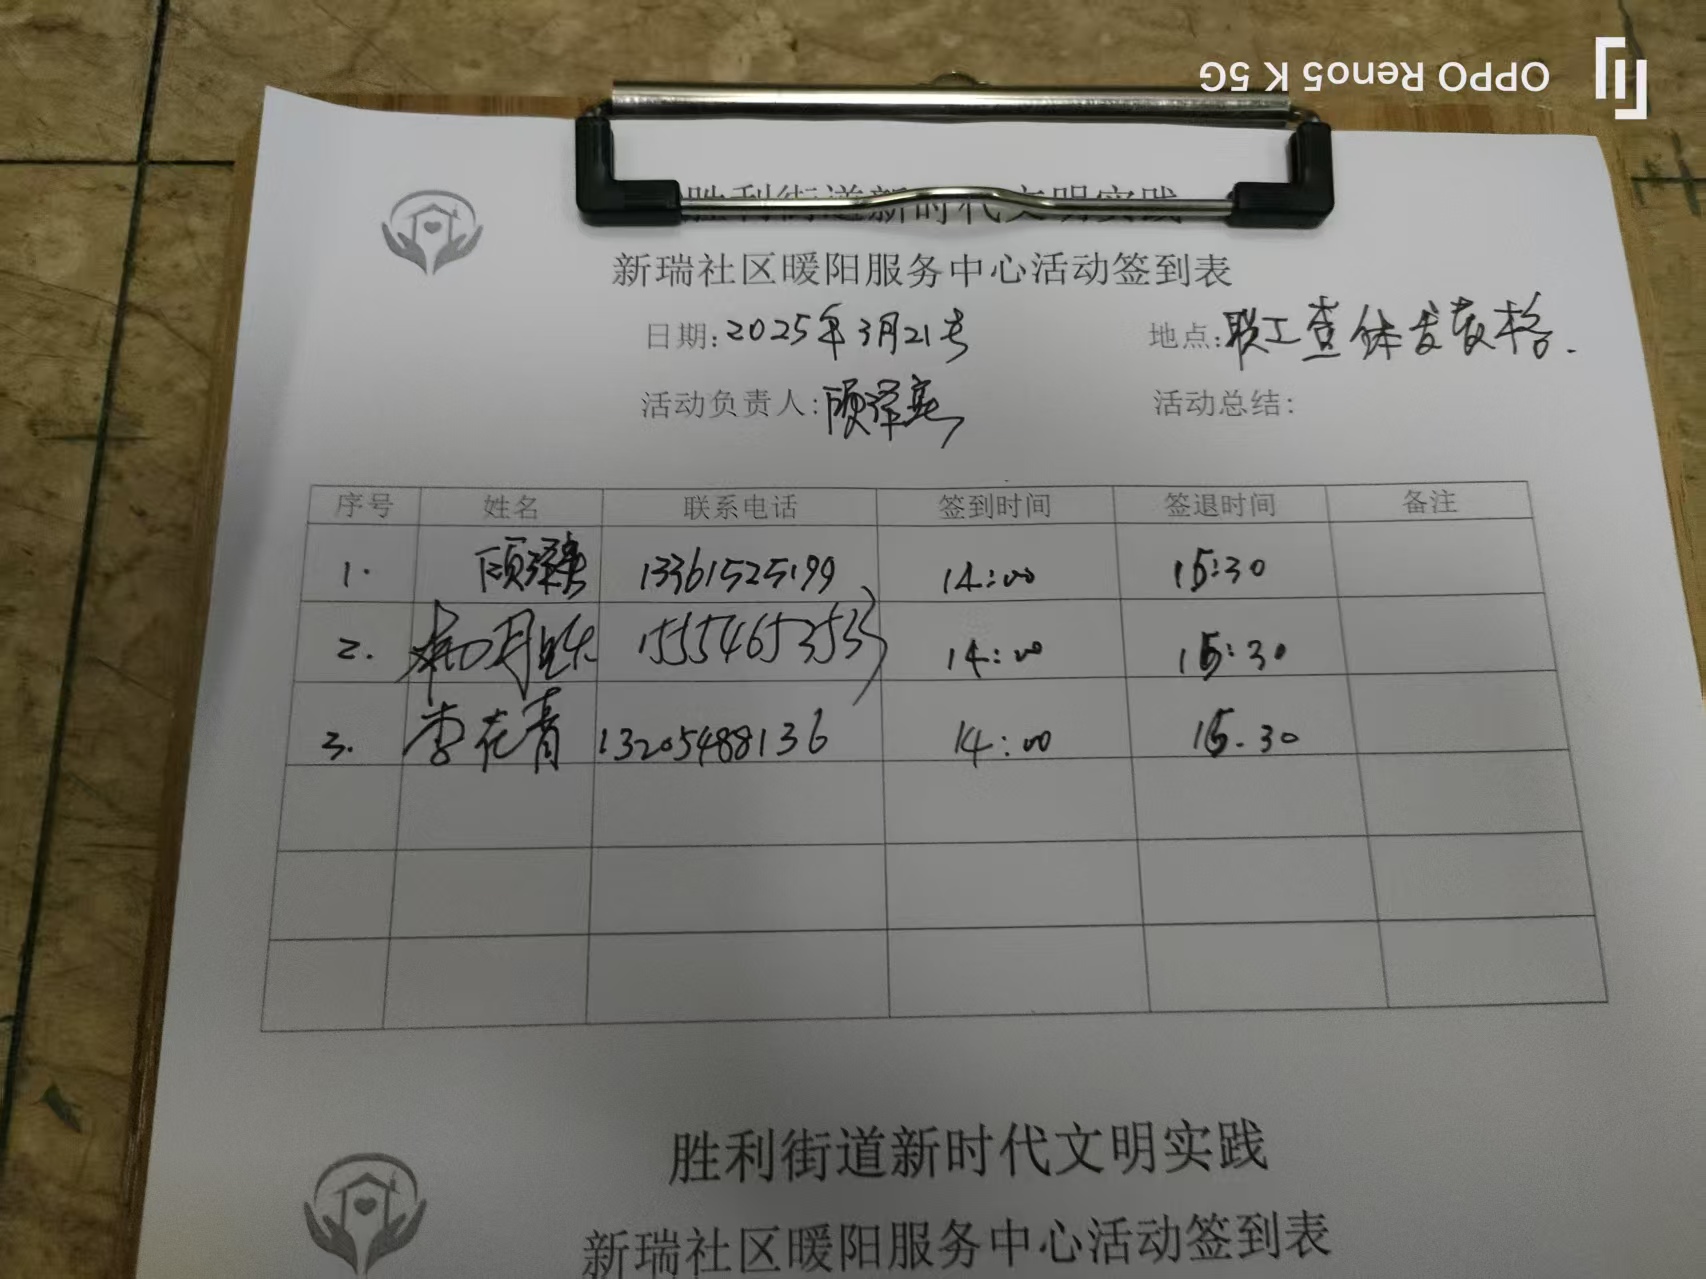 OPPO Reno5 K 5G
胜利街道新时代文明实践
新瑞社区暖阳服务中心活动签到表
日期:2025年3月21号 地点:职工查体发表格.
活动负责人:顾泽 活动总结:
序号 姓名 联系电话 签到时间 签退时间 备注
1. 顾泽 13361525199 14:00 15:30
2. 15554653533 14:00 15:30
3. 李花青 13205488136 14:00 15.30
胜利街道新时代文明实践
新瑞社区暖阳服务中心活动签到表